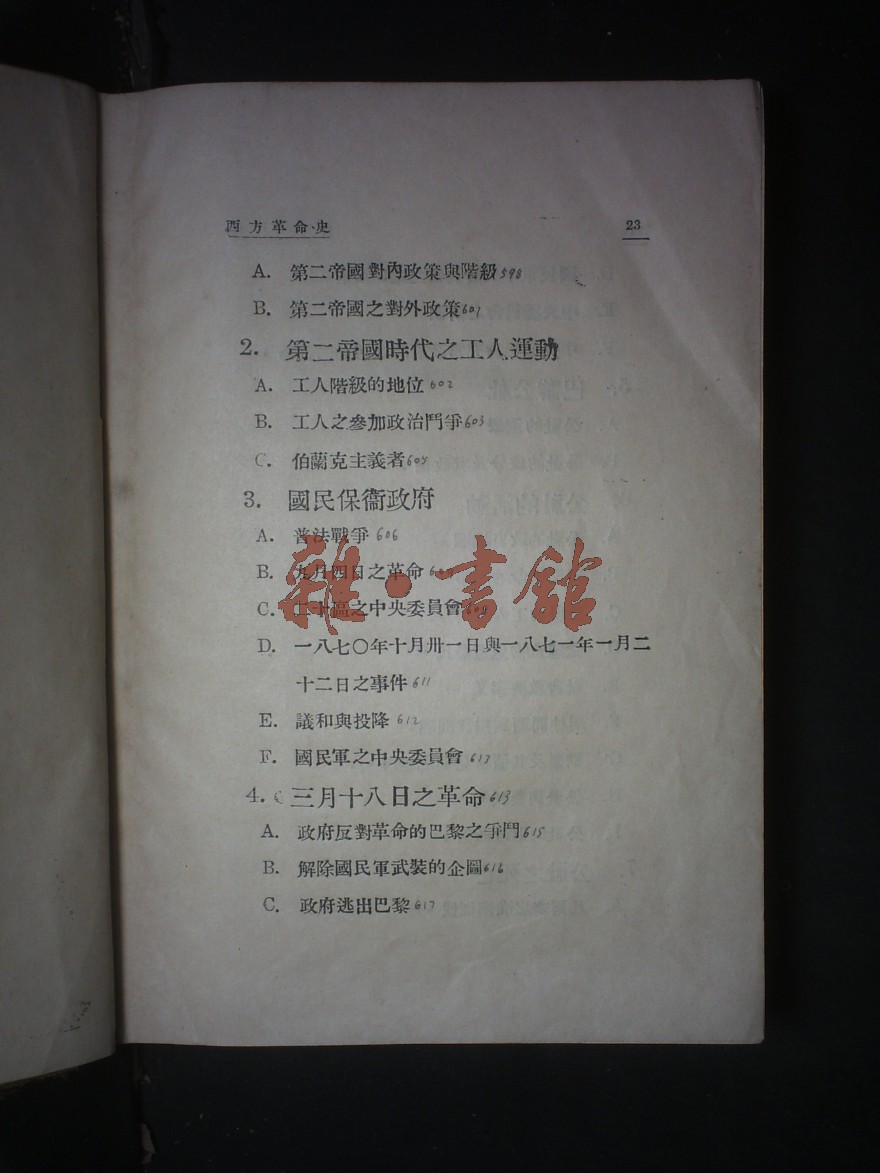 西方革命史 23
A. 第二帝國對內政策與階級 598
B. 第二帝國之對外政策 601
2. 第二帝國時代之工人運動
A. 工人階級的地位 602
B. 工人之參加政治鬥爭 603
C. 伯蘭克主義者 604
3. 國民保衞政府
A. 普法戰爭 606
B. 九月四日之革命
C. 二十區之中央委員會
D. 一八七〇年十月卅一日與一八七一年一月二
十二日之事件 611
E. 議和與投降 612
F. 國民軍之中央委員會 617
4. 三月十八日之革命 613
A. 政府反對革命的巴黎之爭鬥 615
B. 解除國民軍武裝的企圖 616
C. 政府逃出巴黎 617
雜·書館